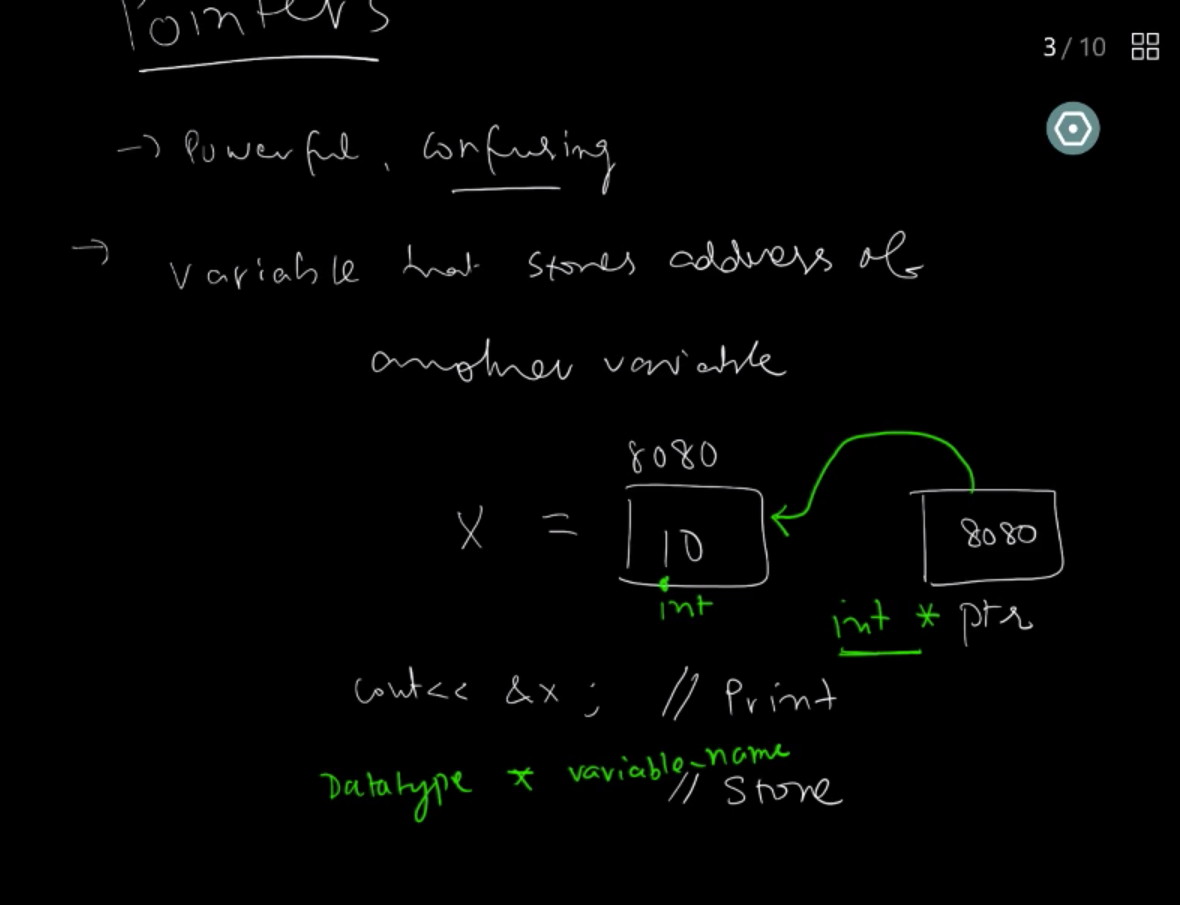 Pointers
3 / 10
→ Powerful, confusing
→ variable that stores address of
another variable
8080
X = 10
8080
int
int * ptr
cout<< &x ; // Print
Datatype * variable_name
// Store